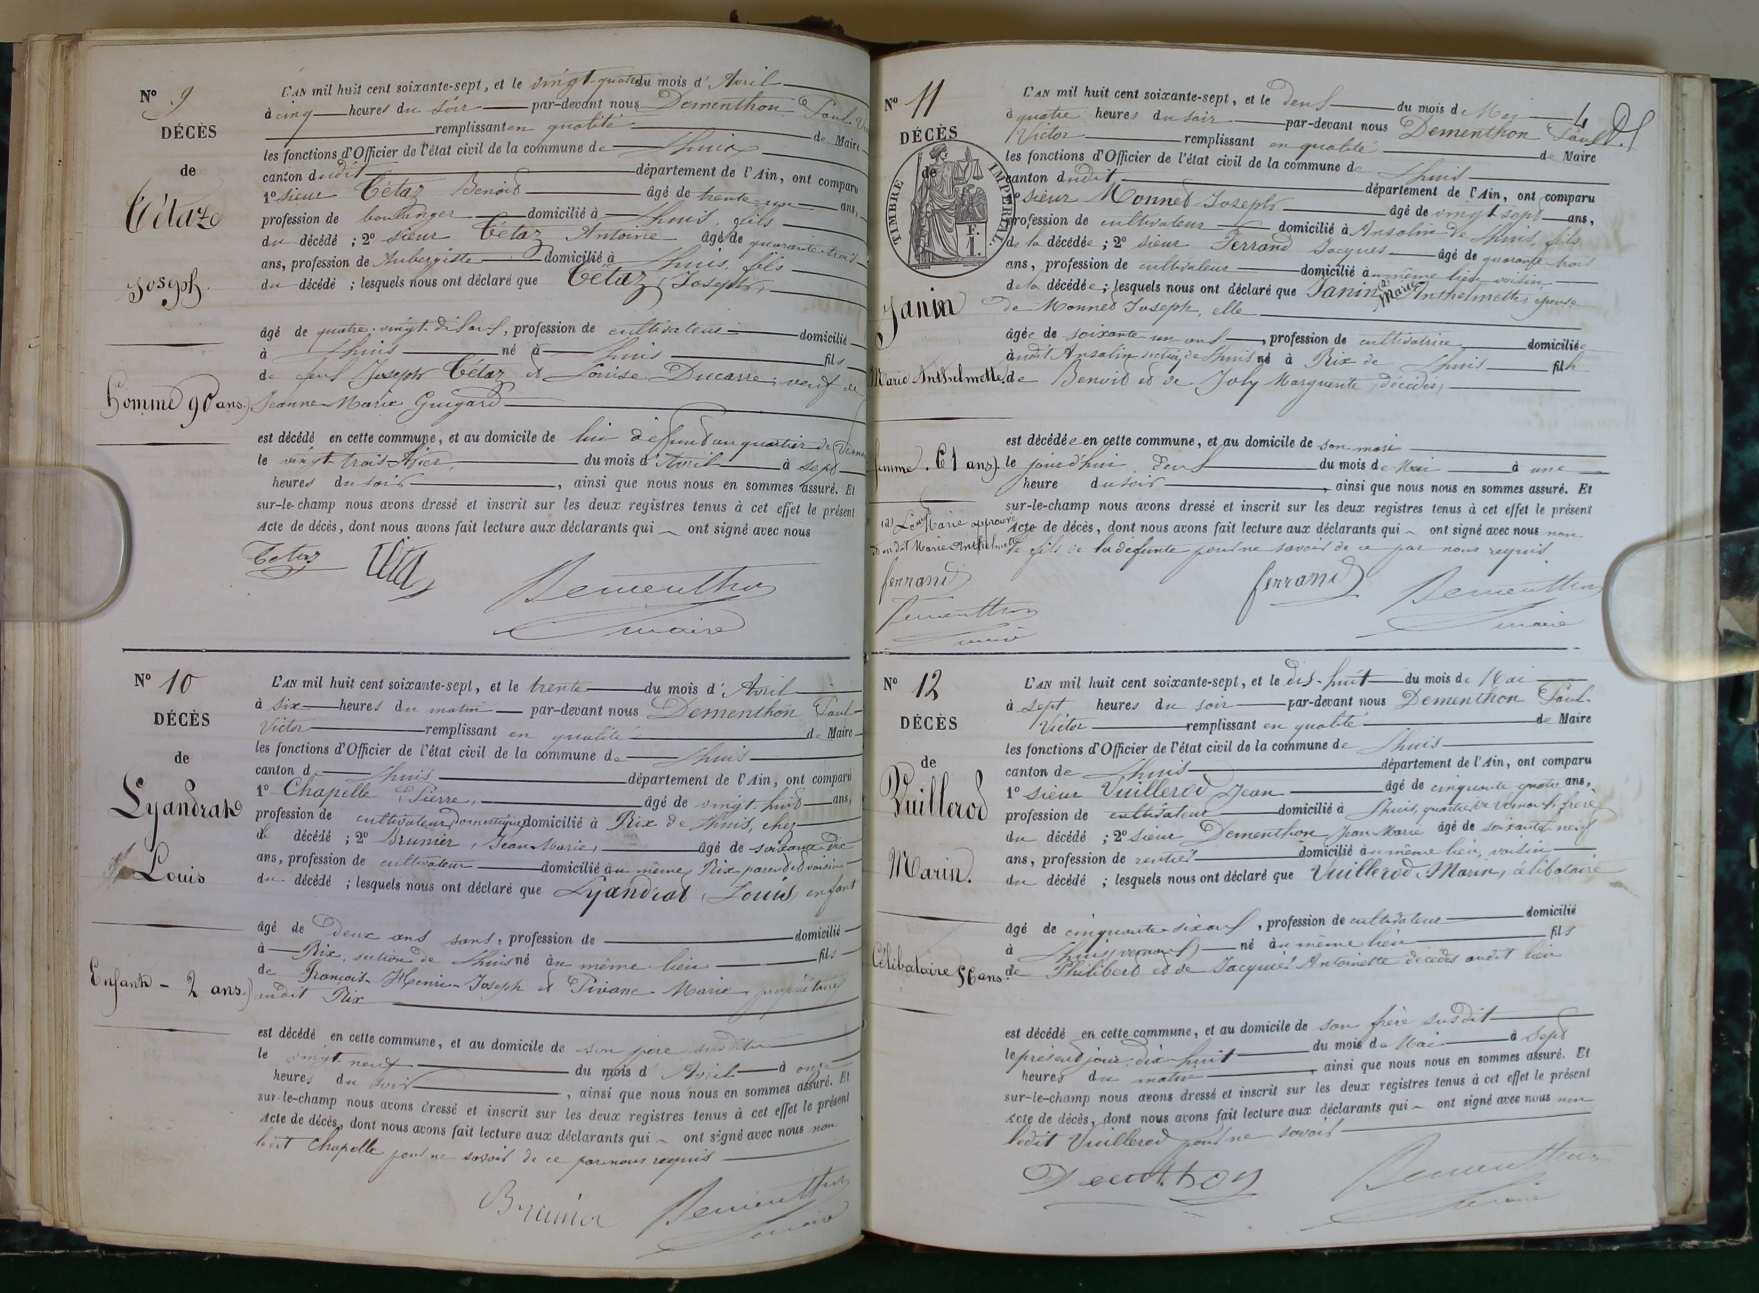 N° 9
DÉCÈS
de
Tétaz
Joseph.
Homme 90 ans.)
L'AN mil huit cent soixante-sept, et le vingt-quatre du mois d'Avril
à cinq heures du soir par-devant nous Dementhon Paul
remplissant en qualité de Maire
les fonctions d'Officier de l'état civil de la commune de Lhuis
canton dudit département de l'Ain, ont comparu
1° sieur Tétaz Benoit âgé de trente-un ans,
profession de boulanger domicilié à Lhuis, fils
du décédé ; 2° sieur Tétaz Antoine âgé de quarante-trois
ans, profession de Aubergiste domicilié à Lhuis, fils
du décédé ; lesquels nous ont déclaré que Tétaz, Joseph,
âgé de quatre-vingt-dix ans, profession de cultivateur domicilié
à Lhuis né à Lhuis fils
de feus Joseph Tétaz et Louise Ducarre, veuf de
Jeanne-Marie Guigard
est décédé en cette commune, et au domicile de lui défunt au quartier de
le vingt-trois du mois d'Avril à sept
heures du soir, ainsi que nous nous en sommes assuré. Et
sur-le-champ nous avons dressé et inscrit sur les deux registres tenus à cet effet le présent
Acte de décès, dont nous avons fait lecture aux déclarants qui ont signé avec nous
Tétaz Tétaz
Dementhon
maire
N° 10
DÉCÈS
de
Lyandrat
Louis
Enfant - 2 ans.)
L'AN mil huit cent soixante-sept, et le trente du mois d'Avril
à six heures du matin par-devant nous Dementhon Paul-
Victor remplissant en qualité de Maire
les fonctions d'Officier de l'état civil de la commune de Lhuis
canton de Lhuis département de l'Ain, ont comparu
1° Chapelle Pierre, âgé de vingt-huit ans,
profession de cultivateur domestique domicilié à Rix de Lhuis, chez
le décédé ; 2° Brunier, Jean-Marie, âgé de soixante-dix
ans, profession de cultivateur domicilié au même Rix voisin
du décédé ; lesquels nous ont déclaré que Lyandrat, Louis, enfant
âgé de Deux ans sans, profession de domicilié
à Rix, section de Lhuis né au même lieu fils
de François-Henri-Joseph et Pivane Marie propriétaires
audit Rix
est décédé en cette commune, et au domicile de son père susdit
le vingt-neuf du mois d'Avril à onze
heures du soir, ainsi que nous nous en sommes assuré. Et
sur-le-champ nous avons dressé et inscrit sur les deux registres tenus à cet effet le présent
Acte de décès, dont nous avons fait lecture aux déclarants qui ont signé avec nous non
ledit Chapelle pour ne savoir de ce par nous requis
Brunier
Dementhon
maire
N° 11
DÉCÈS
de
TIMBRE IMPÉRIAL.
F.
1.
Janin
Marie Anthelmette.
femme. 61 ans)
L'AN mil huit cent soixante-sept, et le deux du mois de Mai
4
à quatre heures du soir par-devant nous Dementhon Paul
Victor remplissant en qualité de Maire
les fonctions d'Officier de l'état civil de la commune de Lhuis
canton dudit département de l'Ain, ont comparu
1° sieur Monnet Joseph âgé de vingt-sept ans,
profession de cultivateur domicilié à Ansolin de Lhuis, fils
de la décédée ; 2° sieur Ferrand Jacques âgé de quarante-trois
ans, profession de cultivateur domicilié au même lieu, voisin
de la décédée ; lesquels nous ont déclaré que Janin (a) Marie Anthelmette, épouse
de Monnet Joseph, elle
âgée de soixante-un ans, profession de cultivatrice domiciliée
audit Ansolin section de Lhuis né à Rix de Lhuis fille
de Benoit et de Joly Marguerite, décédés,
est décédée en cette commune, et au domicile de son mari
le jourd'hui deux du mois de Mai à une
heure du soir, ainsi que nous nous en sommes assuré. Et
sur-le-champ nous avons dressé et inscrit sur les deux registres tenus à cet effet le présent
Acte de décès, dont nous avons fait lecture aux déclarants qui ont signé avec nous non
le fils de la défunte pour ne savoir de ce par nous requis
(a) Le mot Marie approuvé
ferrand
Dementhon
maire
ferrand
Dementhon
maire
N° 12
DÉCÈS
de
Vuillerod
Marin.
Célibataire 56 ans.
L'AN mil huit cent soixante-sept, et le dix-huit du mois de Mai
à sept heures du soir par-devant nous Dementhon Paul-
Victor remplissant en qualité de Maire
les fonctions d'Officier de l'état civil de la commune de Lhuis
canton de Lhuis département de l'Ain, ont comparu
1° sieur Vuillerod Jean âgé de cinquante-quatre ans,
profession de cultivateur domicilié à Lhuis, quartier de frère
du décédé ; 2° sieur Dementhon Jean Marie âgé de soixante-neuf
ans, profession de rentier domicilié au même lieu, voisin
du décédé ; lesquels nous ont déclaré que Vuillerod, Marin, célibataire
âgé de cinquante-six ans, profession de cultivateur domicilié
à Lhuis né au même lieu fils
de Philibert et de Jacquié Antoinette décédés audit lieu
est décédé en cette commune, et au domicile de son frère susdit
le présent jour dix-huit du mois de Mai à sept
heures du matin, ainsi que nous nous en sommes assuré. Et
sur-le-champ nous avons dressé et inscrit sur les deux registres tenus à cet effet le présent
Acte de décès, dont nous avons fait lecture aux déclarants qui ont signé avec nous non
ledit Vuillerod pour ne savoir
Dementhon
Dementhon
maire